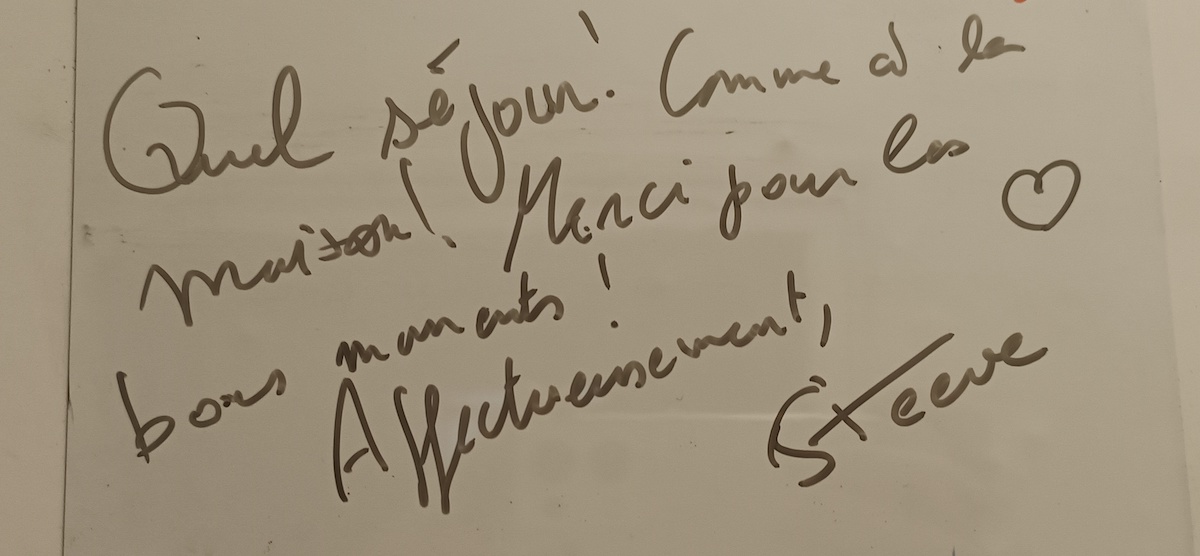 Quel séjour! Comme à la
maison! Merci pour les
bons moments!
Affectueusement,
Steeve